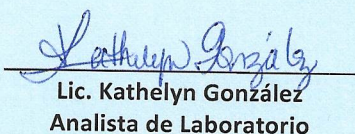 Kathelyn González
Lic. Kathelyn González
Analista de Laboratorio